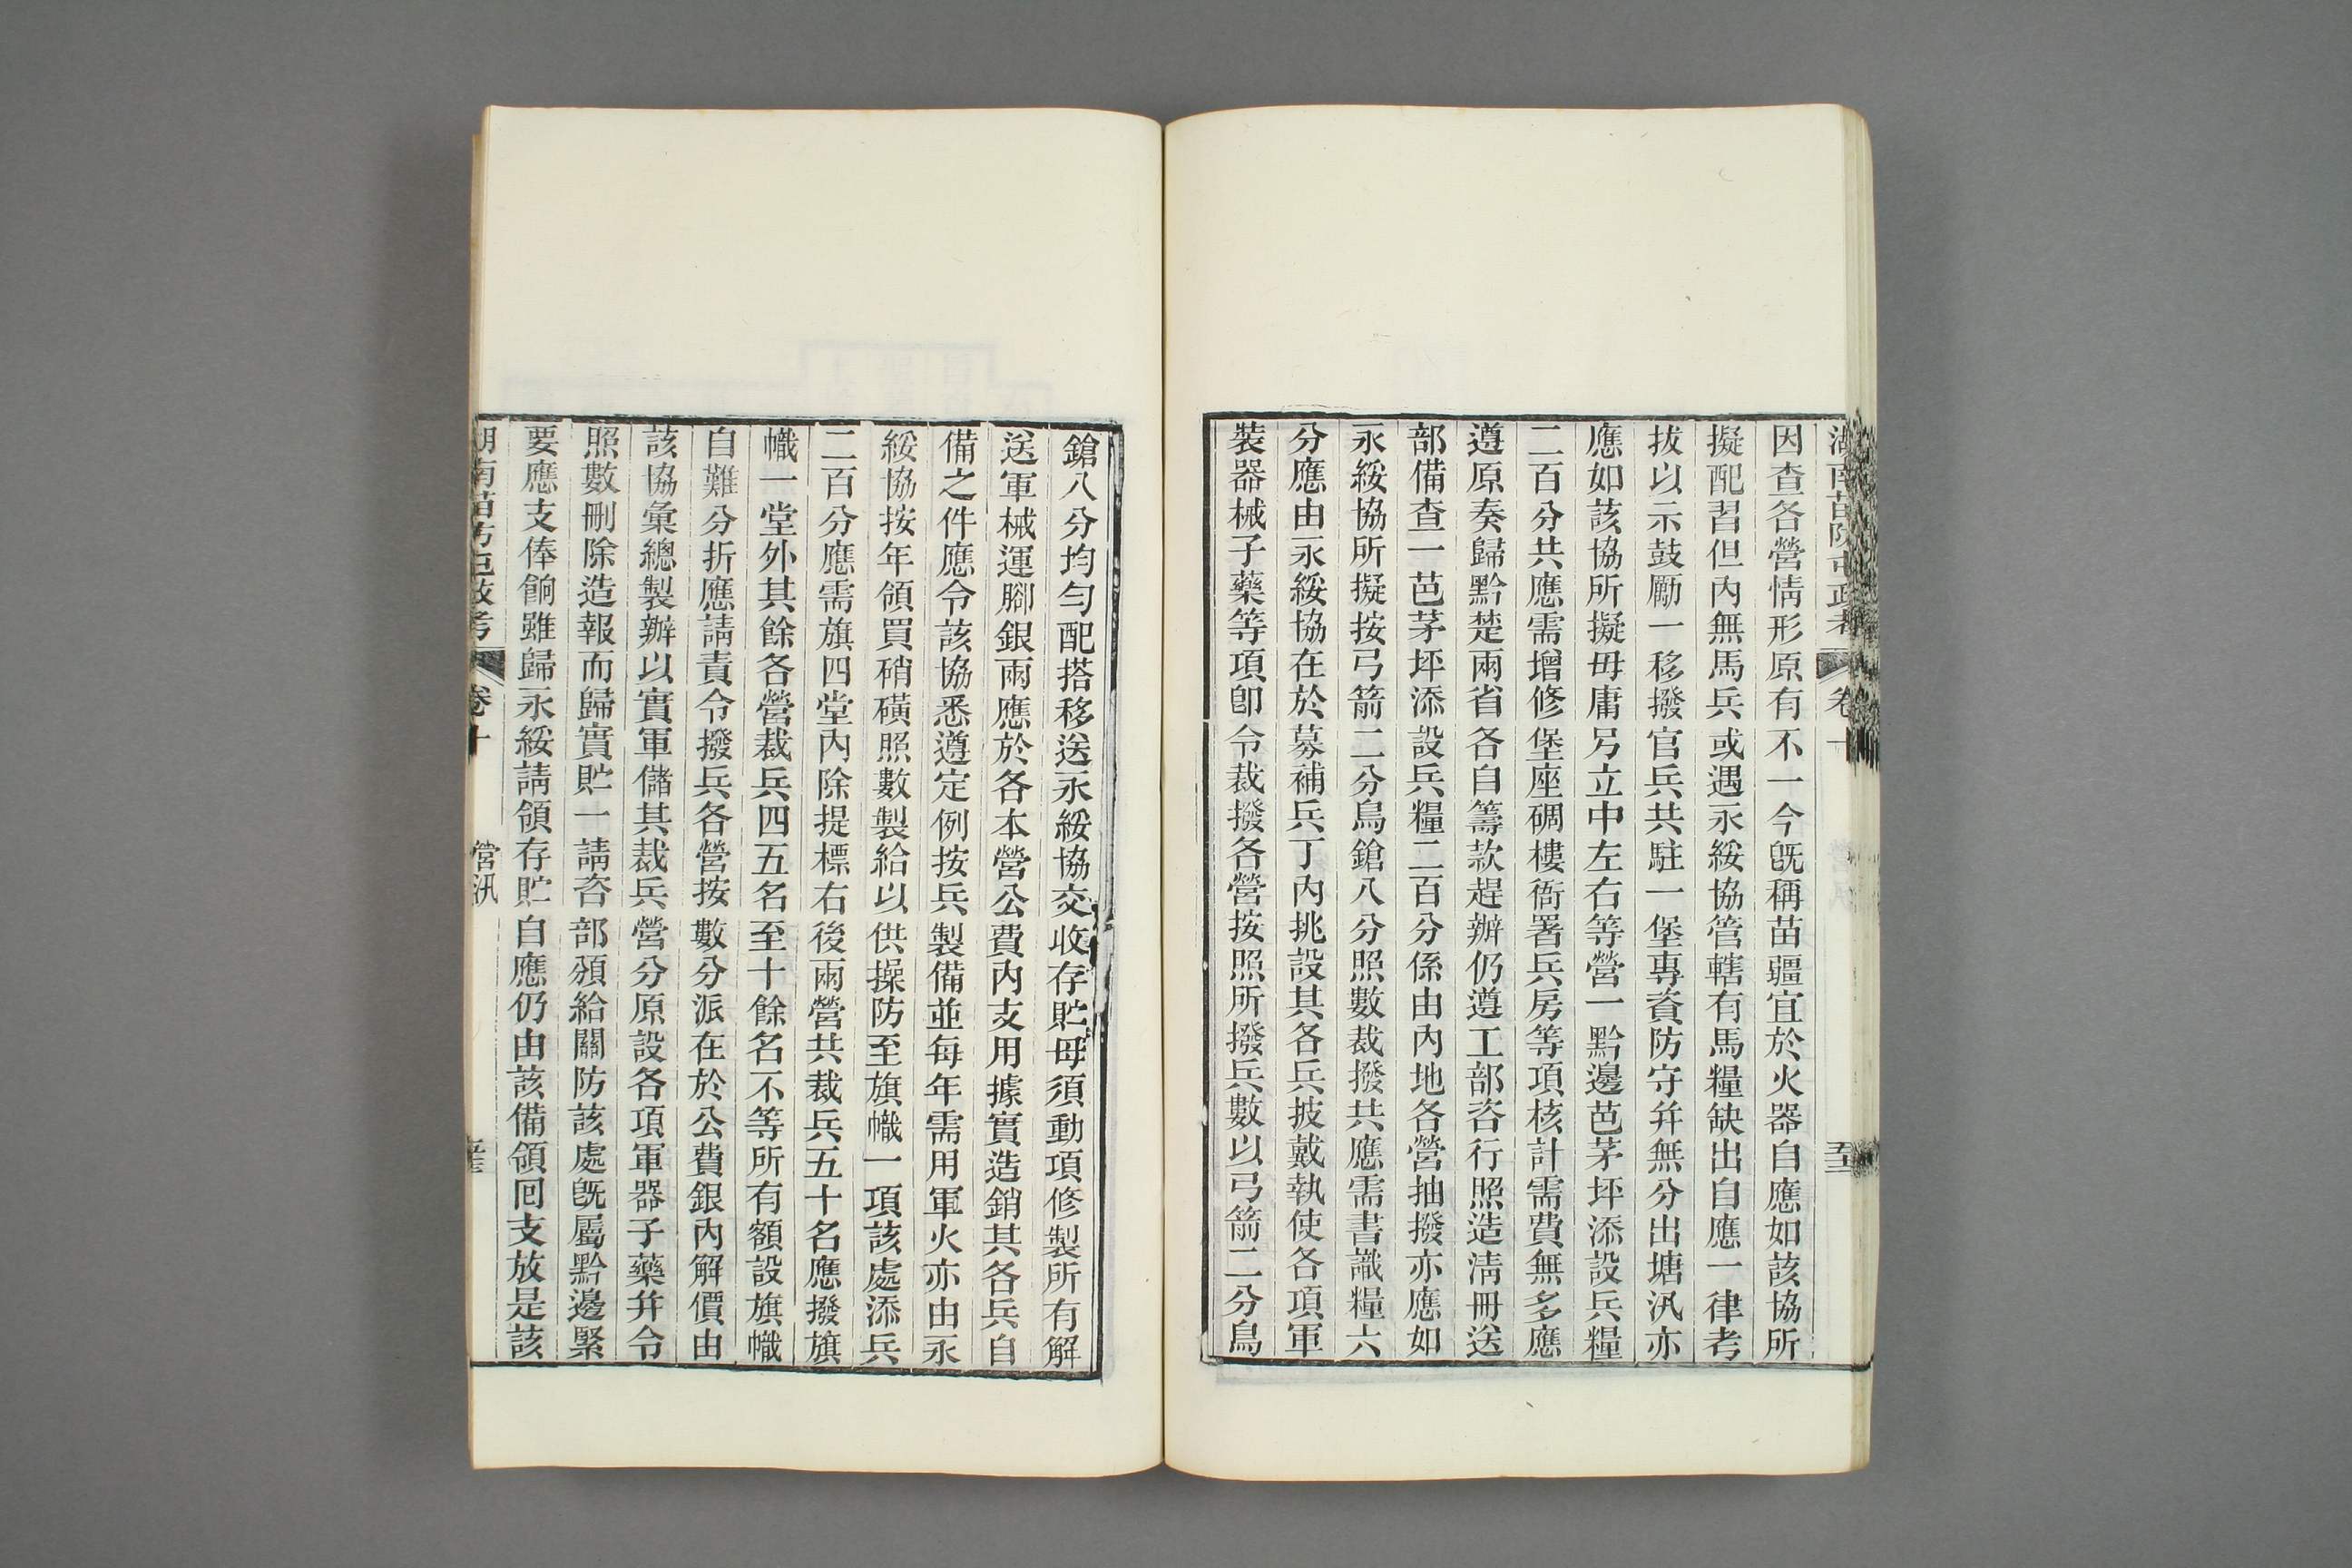 湖南苗防屯政考 卷十 五十二
因查各營情形原有不一今旣稱苗疆宜於火器自應如該協所
擬配習但內無馬兵或遇永綏協管轄有馬糧缺出自應一律考
拔以示鼓勵一移撥官兵共駐一堡專資防守幷無分出塘汛亦
應如該協所擬毋庸另立中左右等營一黔邊芭茅坪添設兵糧
二百分共應需增修堡座碉樓衙署兵房等項核計需費無多應
遵原奏歸黔楚兩省各自籌款趕辦仍遵工部咨行照造淸冊送
部備查一芭茅坪添設兵糧二百分係由內地各營抽撥亦應如
永綏協所擬按弓箭二分鳥鎗八分照數裁撥共應需書識糧六
分應由永綏協在於募補兵丁內挑設其各兵披戴執使各項軍
裝器械子藥等項卽令裁撥各營按照所撥兵數以弓箭二分鳥
鎗八分均勻配搭移送永綏協交收存貯毋須動項修製所有解
送軍械運腳銀兩應於各本營公費內支用據實造銷其各兵自
備之件應令該協悉遵定例按兵製備並每年需用軍火亦由永
綏協按年領買硝磺照數製給以供操防至旗幟一項該處添兵
二百分應需旗四堂內除提標右後兩營共裁兵五十名應撥旗
幟一堂外其餘各營裁兵四五名至十餘名不等所有額設旗幟
自難分折應請責令撥兵各營按數分派在於公費銀內解價由
該協彙總製辦以實軍儲其裁兵營分原設各項軍器子藥幷令
照數刪除造報而歸實貯一請咨部頒給關防該處旣屬黔邊緊
要應支俸餉雖歸永綏請領存貯自應仍由該備領囘支放是該
湖南苗防屯政考 卷十 營汛